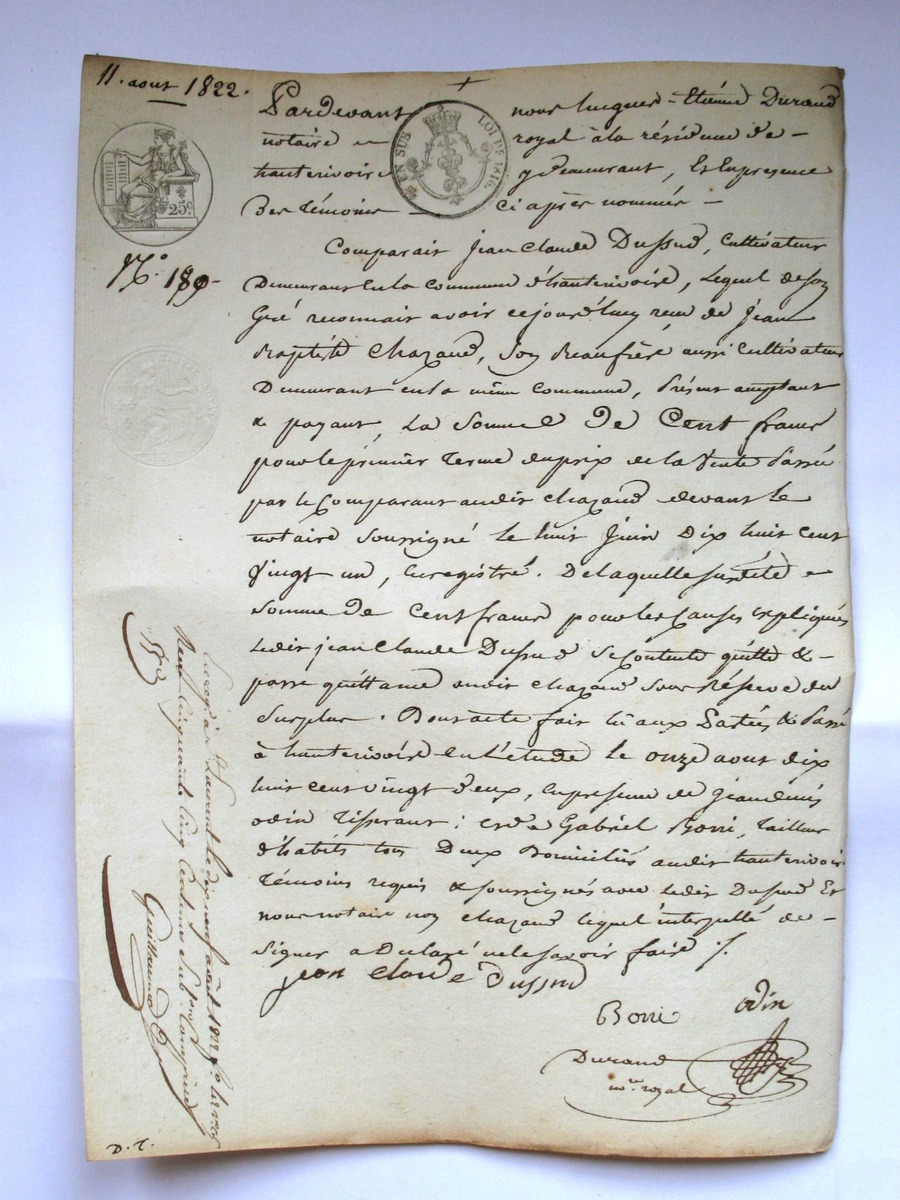 11. aout 1822.
Pardevant nous hugues-Etiénne Durand
notaire royal à la résidence de
hauterivoire y demeurant, Et En presence
Des témoins ci après nommés
EN SUS LOI DE 1816.
25c
N.o 189
Comparait Jean Claude Dussud, Cultivateur
Demeurant En la Commune d'hauterivoire, lequel de son
Gré reconnait avoir cejourd'huy reçu de jean
Baptiste Chazaud, son Beaufrère aussi Cultivateur
Demeurant en la même Commune, présent acceptant
& payant, La Somme De Cent francs
pour le prémier terme du prix de la Vente Passée
par le Comparant audit Chazaud devant le
notaire soussigné le huit Juin Dix huit Cent
Vingt un, Enregistré. De laquelle susdite
Somme De Cent francs pour les Causes expliquées
Ledit jean Claude Dussud Se Contente quitte &
passe quittance audit Chazaud sous Réserve du
Surplus. Dont acte fait lu aux Parties & Passé
à hauterivoire En L'étude le onze aout dix
huit cent vingt deux, En presence de Jean
odin tisserant; et de Gabriel Borri, tailleur
d'habits tous Deux Domiciliés audit hauterivoire
témoins requis & soussignés avec ledit Dussud Et
nous notaire non Chazaud lequel interpellé de
signer a Déclaré ne le savoir faire ./.
jean Claude Dussud
Borri odin
Durand
nore royal
Enregé à St Laurent le dix neuf aout 1822
Reçu Cinquante Cinq Centimes
Guillaume
D. T.